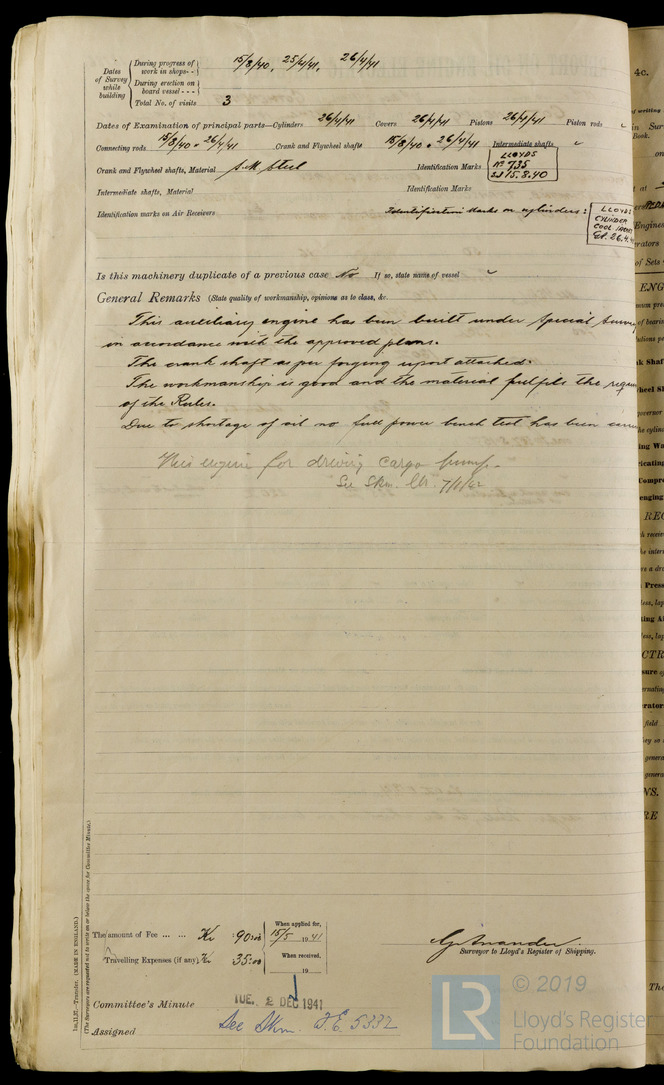 Dates of Survey while building
During progress of work in shops - - 15/8/40, 25/4/41, 26/4/41
During erection on board vessel - - -
Total No. of visits 3
Dates of Examination of principal parts—Cylinders 26/4/41 Covers 26/4/41 Pistons 26/4/41 Piston rods
Connecting rods 15/8/40 + 26/4/41 Crank and Flywheel shafts 15/8/40 + 26/4/41 Intermediate shafts
Crank and Flywheel shafts, Material S.M. Steel Identification Marks LLOYDS No 735 15.8.40
Intermediate shafts, Material Identification Marks
Identification marks on Air Receivers Identification Marks on cylinders: LLOYDS CYLINDER 26.4.
Is this machinery duplicate of a previous case No If so, state name of vessel
General Remarks (State quality of workmanship, opinions as to class, &c.
This auxiliary engine has been built under Special Survey
in accordance with the approved plans.
The crank shaft as per forging report attached.
The workmanship is good and the material fulfils the
of the Rules.
Due to shortage of oil no full power bench test has been
This engine for driving cargo pump.
See Skm. 7/1/42
The amount of Fee ... ... Kr. : 90:00
When applied for, 15/5 1941
Travelling Expenses (if any) Kr. 35:00
When received, 19
Surveyor to Lloyd's Register of Shipping.
Committee's Minute TUE. 2 DEC 1941
Assigned See Skm. F.E. 5332
1m.11.37.—Transfer. (MADE IN ENGLAND.)
(The Surveyors are requested not to write on or below the space for Committee Minute.)
© 2019
LR
Lloyd's Register
Foundation
4c.